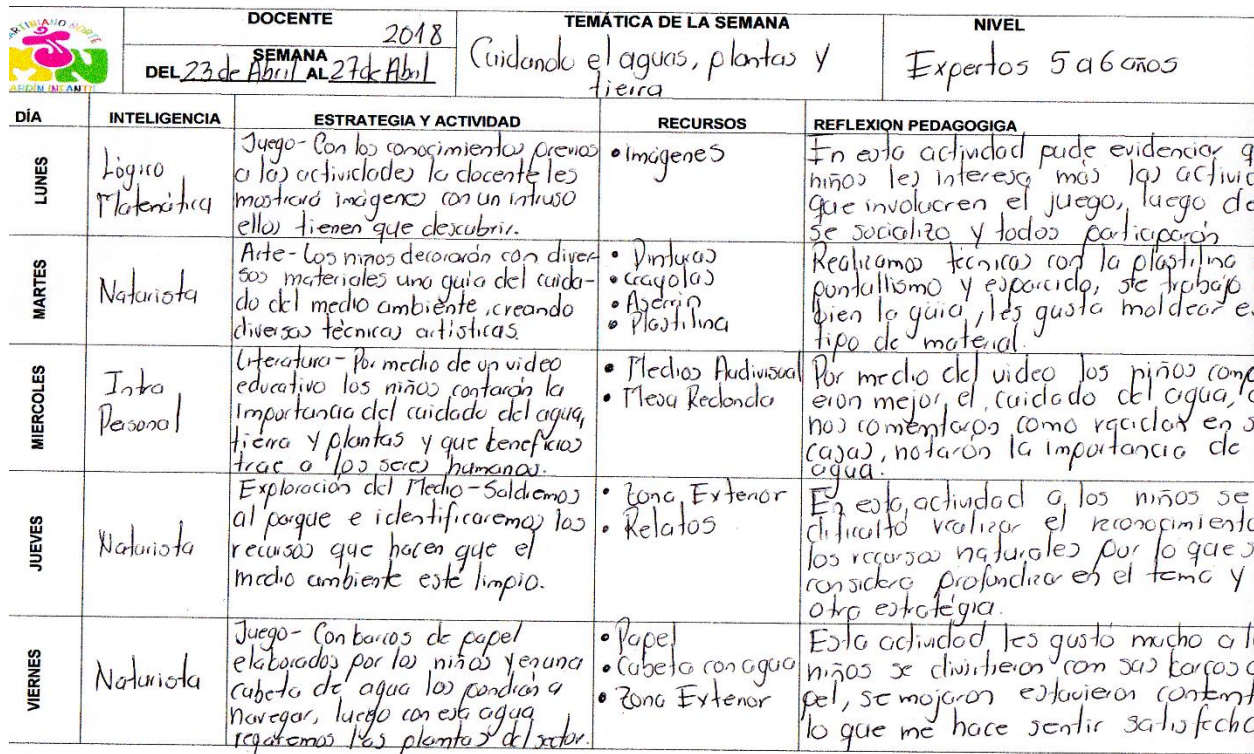 MARTINIANO NORTE
JARDIN INFANTIL
DOCENTE
2018
SEMANA
DEL 23 de Abril AL 27 de Abril
TEMÁTICA DE LA SEMANA
Cuidando el aguas, plantas y
tierra
NIVEL
Expertos 5 a 6 años
DÍA
INTELIGENCIA
ESTRATEGIA Y ACTIVIDAD
RECURSOS
REFLEXION PEDAGOGIGA
LUNES
Lógico
Matemática
Juego- Con los conocimientos previos
a las actividades la docente les
mostrará imágenes con un intruso
ellos tienen que descubrir.
• Imágenes
En esta actividad pude evidenciar q
niños les interesa más las activid
que involucren el juego, luego de
se socializo y todos participarón
MARTES
Naturista
Arte- Los niños decorarán con diver
sos materiales una guia del cuida-
do del medio ambiente, creando
diversas técnicas artisticas.
• Pinturas
• crayolas
• Aserrin
• Plastilina
Realizamos tecnicas con la plastilina
puntallismo y esparcido, se trabajo
bien la guia, les gusta moldear es
tipo de material.
MIERCOLES
Intra
Personal
Literatura- Por medio de un video
educativo los niños contarán la
importancia del cuidado del agua,
tierra y plantas y que beneficios
trae a los seres humanos.
• Medios Audivisual
• Mesa Redonda
Por medio del video los niños comp
eron mejor el cuidado del agua,
nos comentarós como reciclar en s
casas, notarón la importancia de
agua.
JUEVES
Naturista
Exploración del Medio-Saldremos
al parque e identificaremos los
recursos que hacen que el
medio ambiente esté limpio.
• Zona Exterior
• Relatos
En esta actividad a los niños se
dificulto realizar el reconocimiento
los recursos naturales por lo que s
considera profundizar en el tema y
otra estratégia.
VIERNES
Naturista
Juego- Con barcos de papel
elaborados por los niños y en una
cubeta de agua los pondrán a
navegar, luego con esa agua
regaremos las plantas del sector.
• Papel
• Cubeta con agua
• Zona Exterior
Esta actividad les gustó mucho a l
niños se divirtieron con sus barcos
pel, se mojaron estuvieron content
lo que me hace sentir satisfecho